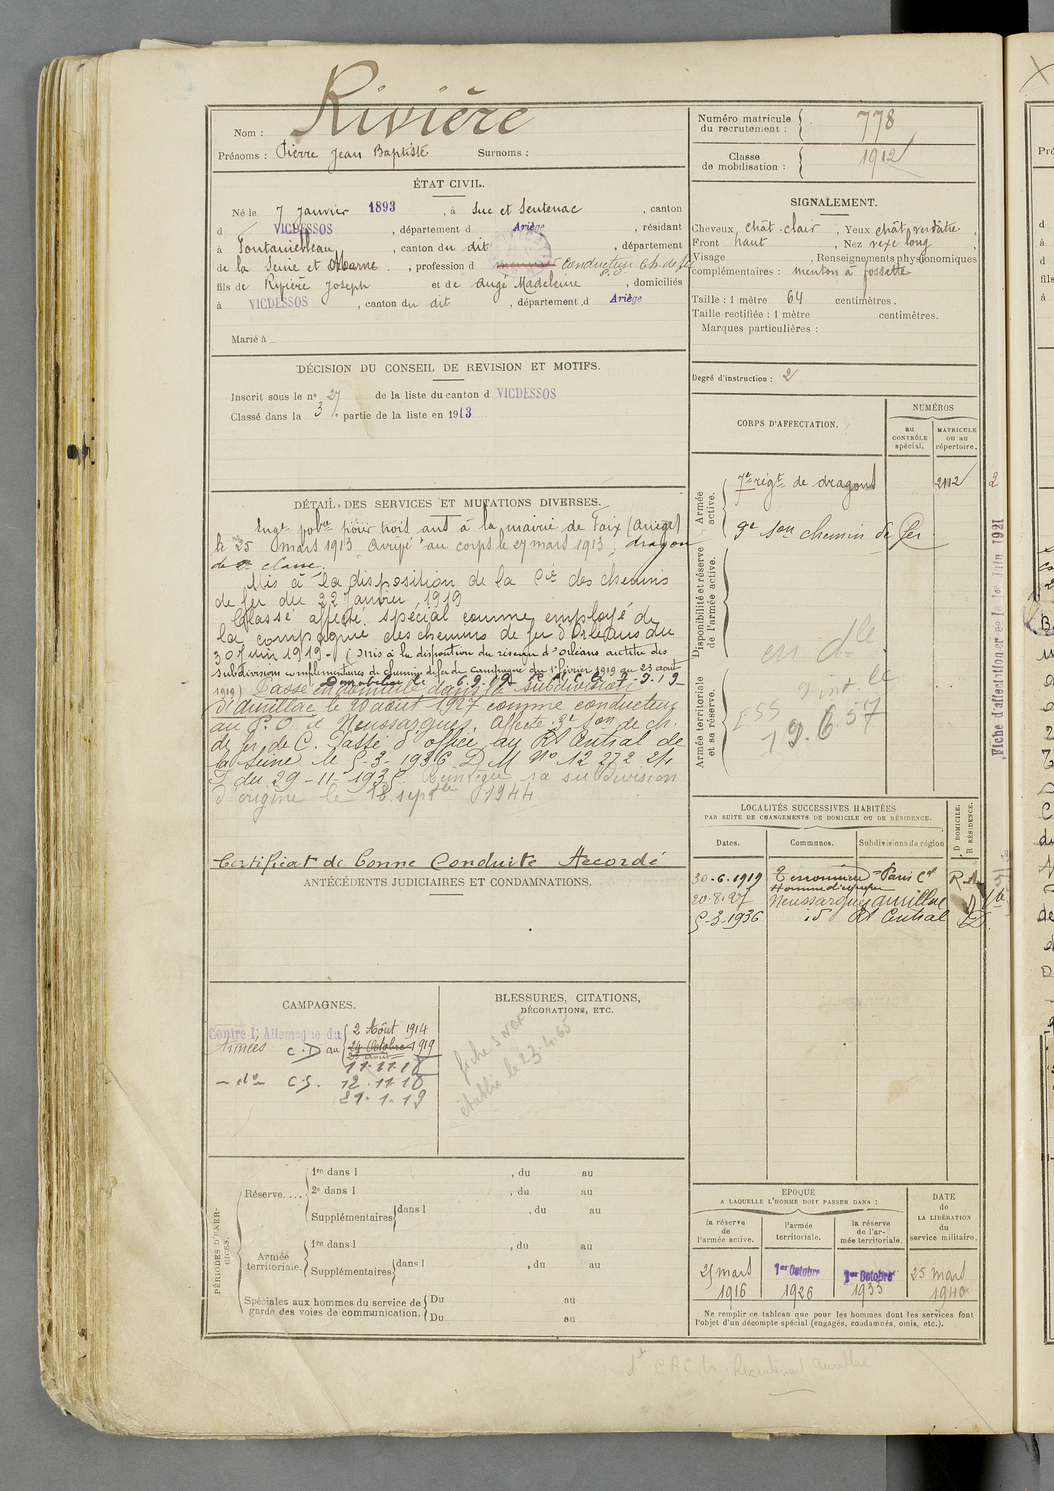 Nom : Rivière
Prénoms : Pierre Jean Baptiste Surnoms :
ÉTAT CIVIL.
Né le 7 Janvier 1893, à Suc et Sentenac, canton
d VICDESSOS, département d Ariège, résidant
à Fontainebleau, canton du dit, département
de la Seine et Marne, profession d conducteur Ch. de fer
P.O
fils de Rivière Joseph et de Augé Madeleine, domiciliés
à VICDESSOS, canton du dit, département d Ariège
Marié à
DÉCISION DU CONSEIL DE REVISION ET MOTIFS.
Inscrit sous le n° 27 de la liste du canton d VICDESSOS
Classé dans la 3 partie de la liste en 1913
DÉTAIL DES SERVICES ET MUTATIONS DIVERSES.
Engt volre pour trois ans à la mairie de Foix (Ariège)
le 25 mars 1913. Arrivé au corps le 27 mars 1913, dragon
de 2e classe.
Mis à la disposition de la Cie des chemins
de fer du 22 Janvier 1919
Classé affecté spécial comme employé de
la compagnie des chemins de fer d'Orléans du
30 Juin 1919 - (Mis à la disposition du réseau d'Orléans au titre des
subdivision complémentaires de chemins de fer de Campagne du 1er février 1919 au 23 août
1919) Passé en domicile dans la subdivision
d'Aurillac le 20 août 1927 comme conducteur
au P.O. à Neussargues. Affecté 9e Son de ch.
de fer de C. Passé d'office au Rt Central de
la Seine le 5-3-1936 D.M. N° 12 272 2/1
du 29-11-1935. Réintègre sa subdivision
d'origine le 18 septbre 1944
Certificat de Bonne Conduite Accordé
ANTÉCÉDENTS JUDICIAIRES ET CONDAMNATIONS.
CAMPAGNES.
Contre l'Allemagne du 2 Août 1914
Armées C.D au 24 Octobre 1919
11.11.18
- do - C.S. 12.11.18
21.1.19
BLESSURES, CITATIONS,
DÉCORATIONS, ETC.
fiche SNCF
établie le 23.4.65
PÉRIODES D'EXERCICES.
Réserve....
1re dans l , du au
2e dans l , du au
Supplémentaires dans l , du au
Armée territoriale.
1re dans l , du au
Supplémentaires dans l , du au
Spéciales aux hommes du service de garde des voies de communication.
Du au
Du au
Numéro matricule du recrutement : 778
Classe de mobilisation : 1912
SIGNALEMENT.
Cheveux chât. clair, Yeux chât. verdâtre
Front haut, Nez vexe long
Visage , Renseignements physionomiques
complémentaires : menton à fossette
Taille : 1 mètre 64 centimètres.
Taille rectifiée : 1 mètre centimètres.
Marques particulières :
Degré d'instruction : 2
CORPS D'AFFECTATION.
NUMÉROS
au CONTRÔLE spécial.
MATRICULE ou au répertoire.
Armée active.
7e régt de dragons 2112
9e Son chemin de fer
Disponibilité et réserve de l'armée active.
Armée territoriale et sa réserve.
19.6.57
Fiche d'affectation créée le 1er Juin 1921
LOCALITÉS SUCCESSIVES HABITÉES
PAR SUITE DE CHANGEMENTS DE DOMICILE OU DE RÉSIDENCE.
Dates. Communes. Subdivisions de région
D DOMICILE. R RÉSIDENCE.
30-6-1919 Paris Cl R
Homme d'équipe
20-8-27 Neussargues Aurillac D
5-3-1936 id Rt Central D
EPOQUE
A LAQUELLE L'HOMME DOIT PASSER DANS :
la réserve de l'armée active.
l'armée territoriale.
la réserve de l'armée territoriale.
DATE de LA LIBÉRATION du service militaire.
25 mars 1916
1er Octobre 1926
1er Octobre 1933
25 mars 1940
Ne remplir ce tableau que pour les hommes dont les services font
l'objet d'un décompte spécial (engagés, condamnés, omis, etc.).